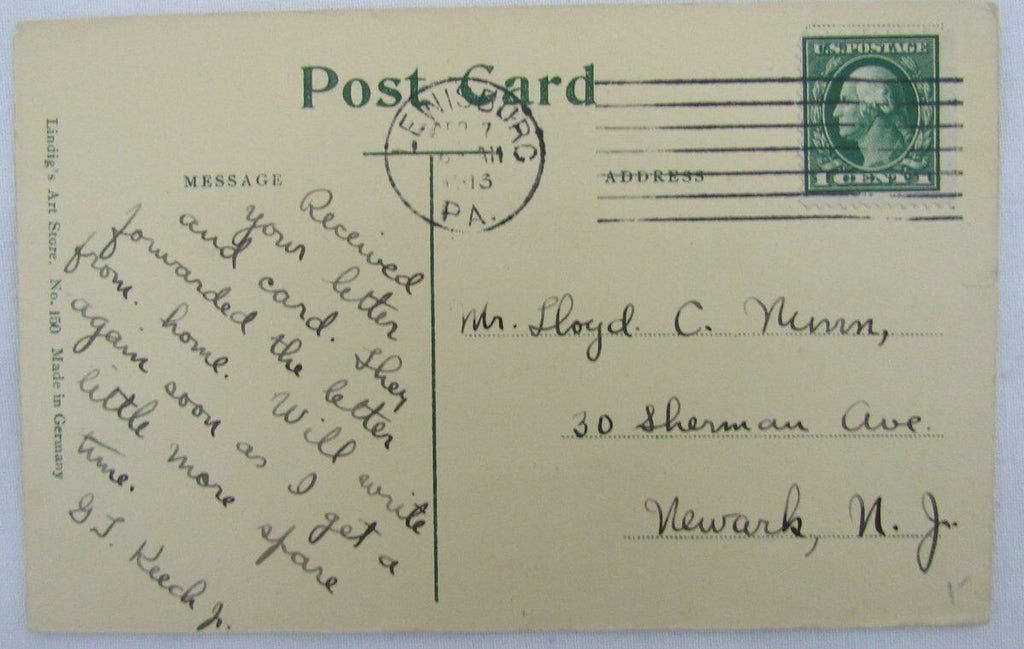 Post Card
LEWISBURG
1913
PA.
U.S. POSTAGE
1 CENT 1
MESSAGE
ADDRESS
Received
your letter
and card. They
forwarded the letter
from home. Will write
again soon as I get a
little more spare
time.
G.L. Keech Jr.
Mr. Lloyd C. Nunn,
30 Sherman Ave.
Newark, N. J.
Lindig's Art Store. No. 150 Made in Germany